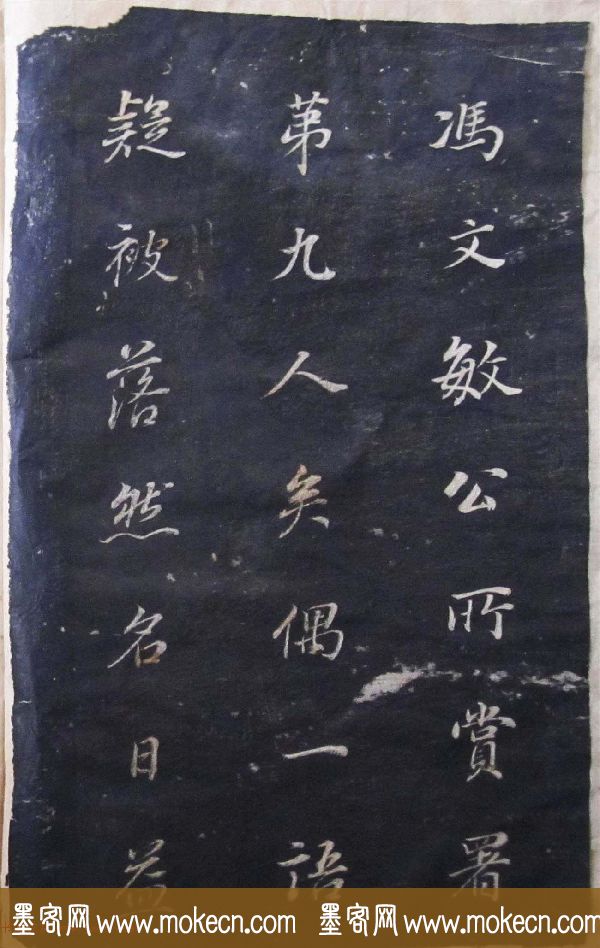 馮文敏公所賞署
第九人矣偶一語
疑被落然名日益
墨客网 www.mokecn.com 墨客网 www.mokecn.com